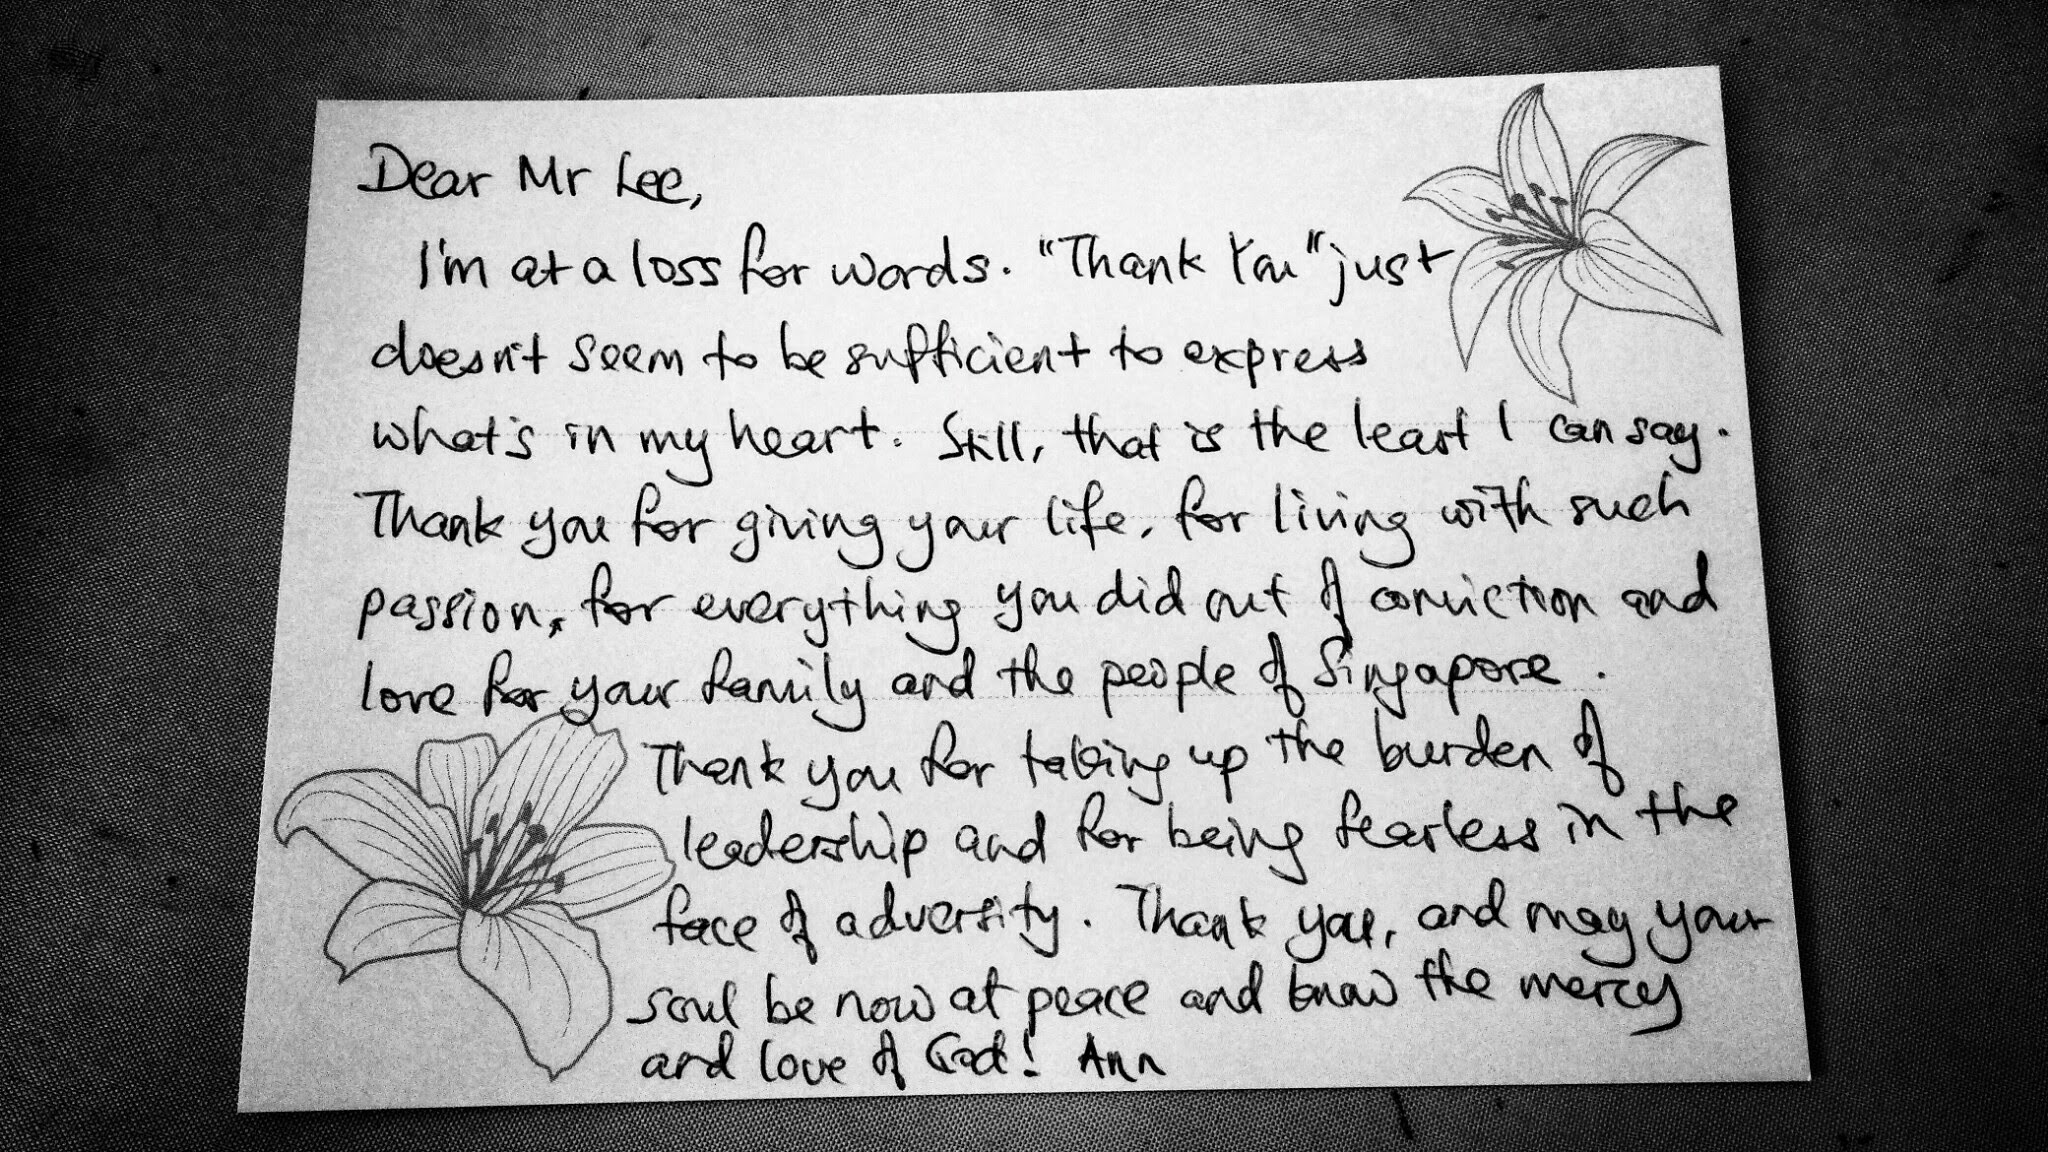 Dear Mr Lee,
I'm at a loss for words. "Thank You" just
doesn't seem to be sufficient to express
what's in my heart. Still, that is the least I can say.
Thank you for giving your life, for living with such
passion, for everything you did out of conviction and
love for your family and the people of Singapore.
Thank you for taking up the burden of
leadership and for being fearless in the
face of adversity. Thank you, and may your
soul be now at peace and know the mercy
and love of God! Ann